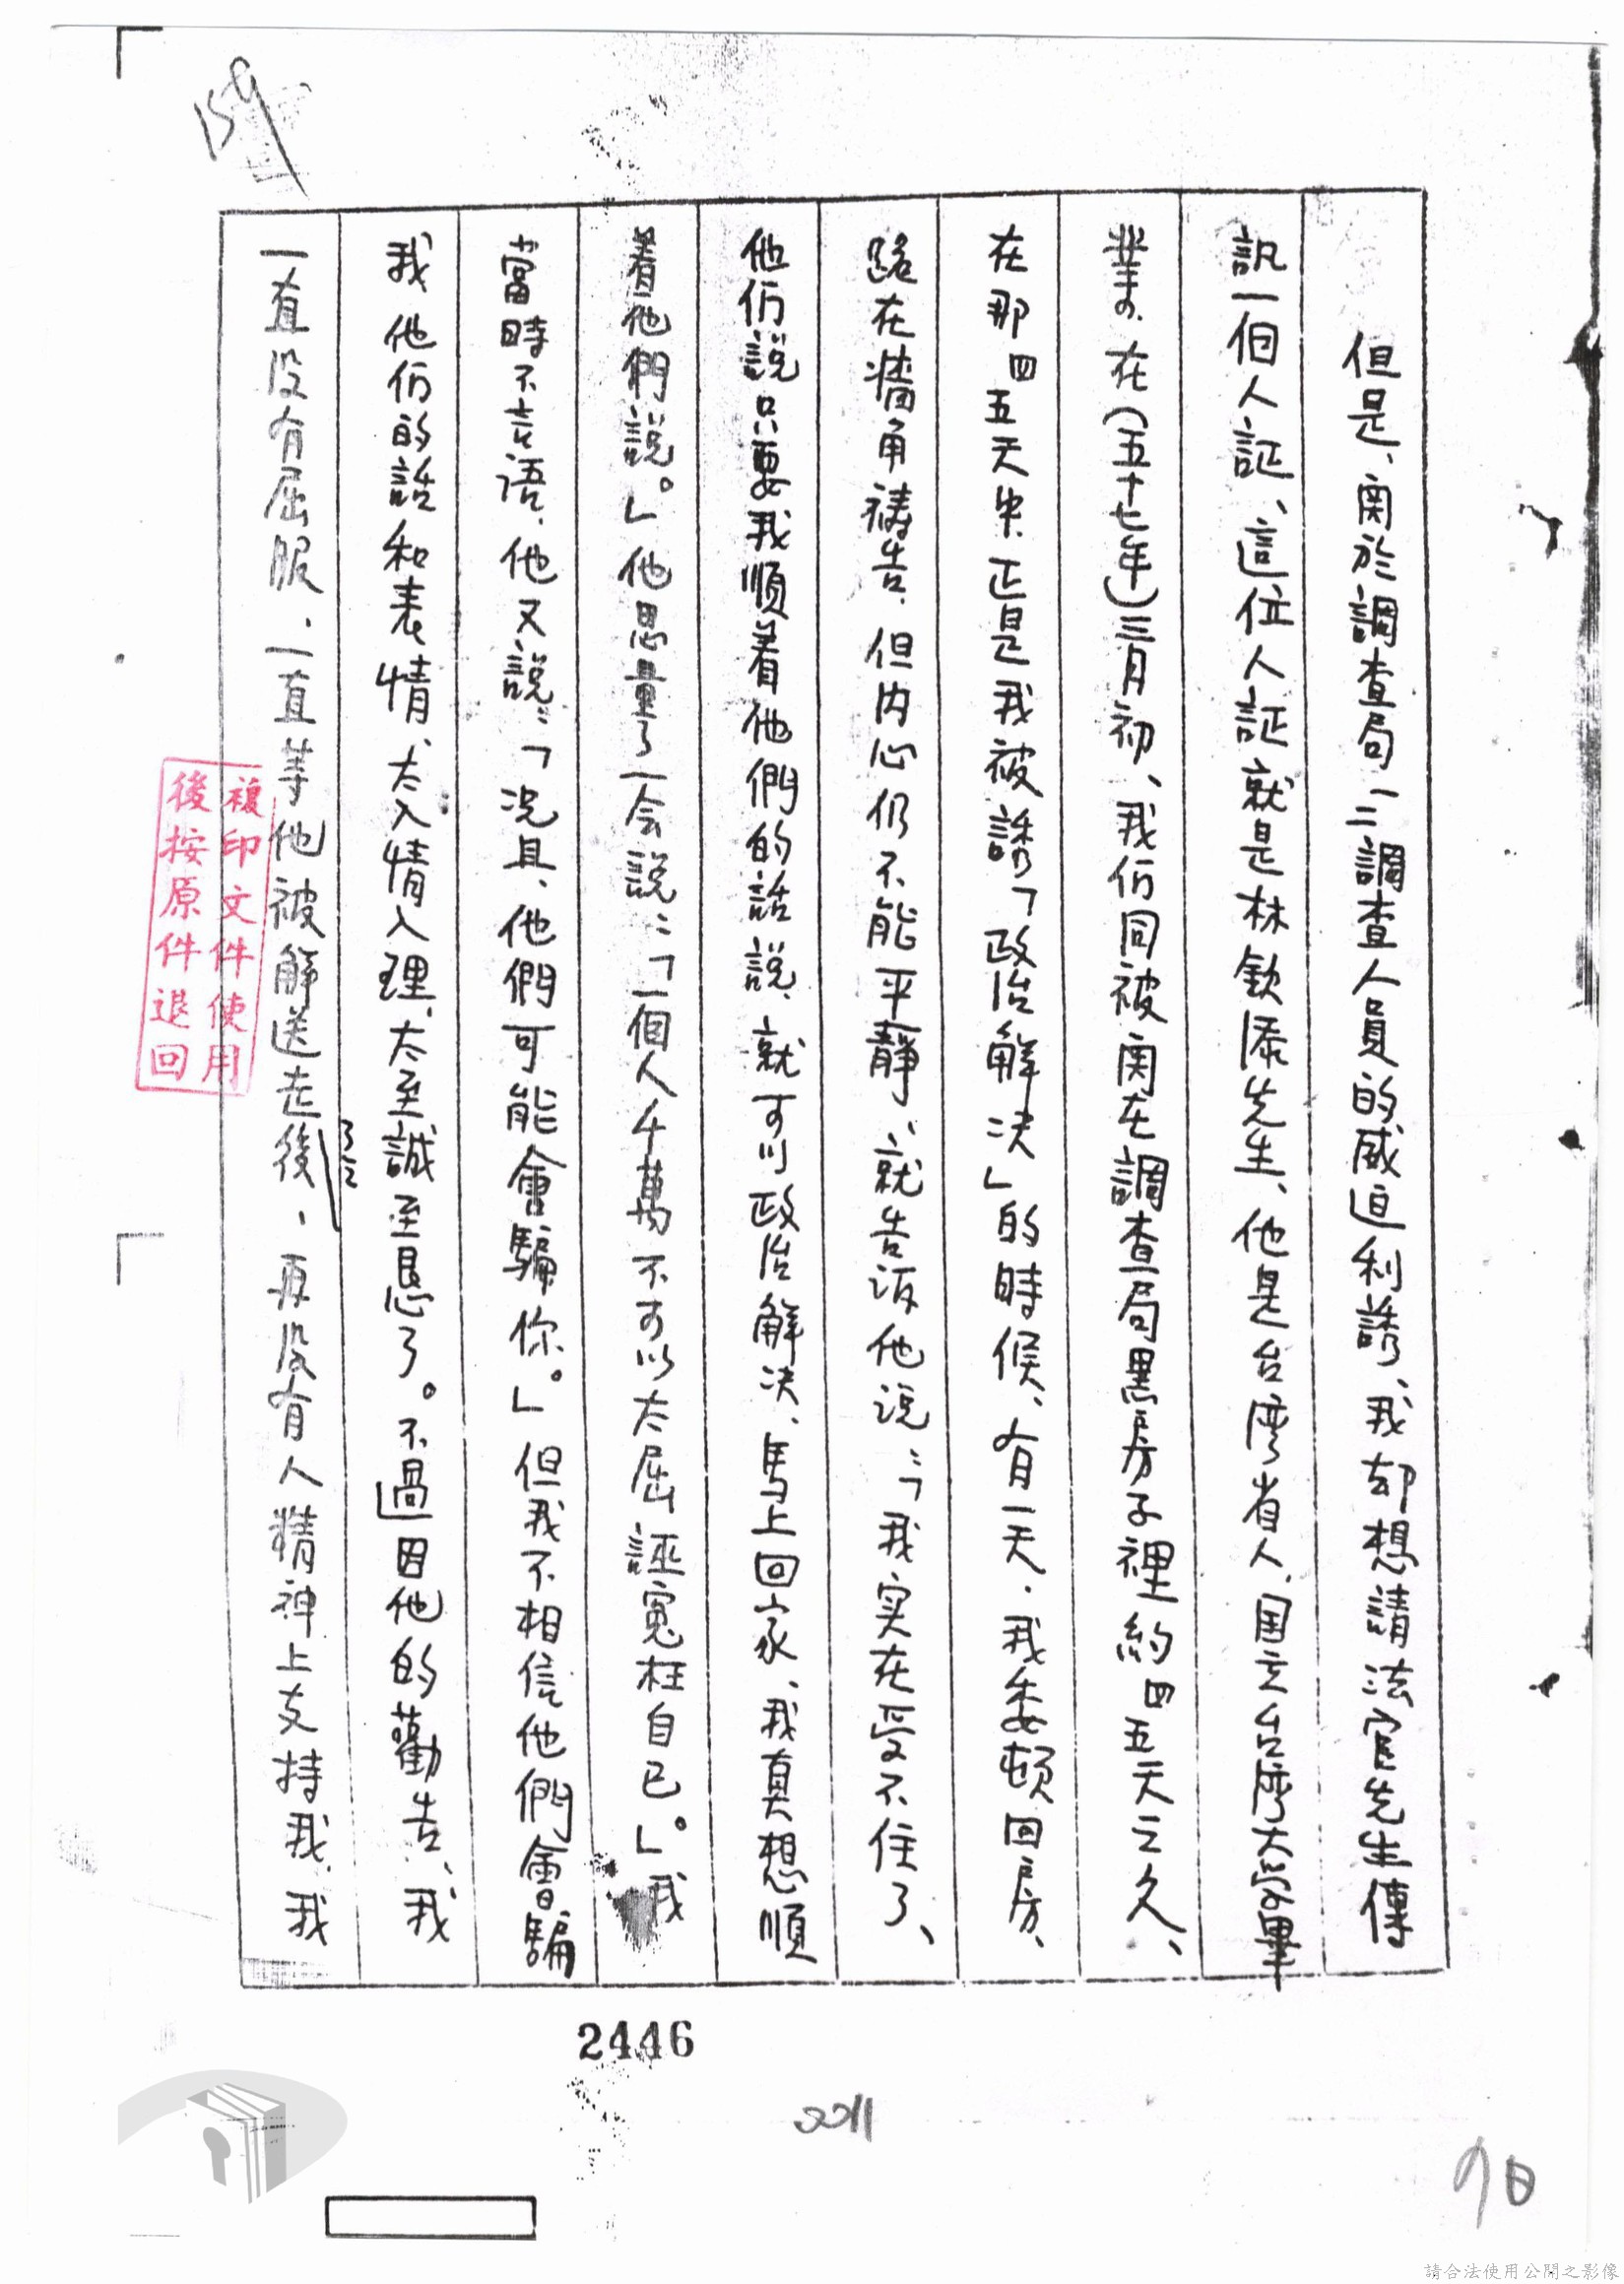 但是、関於調查局一二調查人員的威迫利誘、我却想請法官先生傳
訊一個人証、這位人証就是林欽添先生、他是台湾省人、国立台湾大学畢
業的、在(五十七年)三月初、我们同被関在調查局黑房子裡約四五天之久、
在那四五天中、正是我被誘「政治解决」的時候、有一天、我委頓回房、
跪在墻角禱告、但内心仍不能平靜、就告诉他说：「我实在受不住了、
他们說只要我順着他們的話說、就可以政治解决、馬上回家、我真想順
着他們說。」他思量了一会說：「一個人千萬不可以太屈誣寃枉自己。」我
當時不言語、他又說：「况且、他們可能會騙你。」但我不相信他們會騙
我他们的話和表情、太入情入理、太至誠至恳了。不過因他的勸告、我
一直没有屈服、一直等他被解送走後、再没有人精神上支持我、我
了之
複印文件使用
後按原件退回
159
2446
2011
90
請合法使用公開之影像